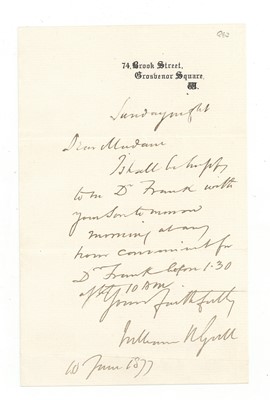 74, Brook Street,
Grosvenor Square,
W.
Sunday night
Dear Madam
I shall be happy
to see Dr Frank with
your Son tomorrow
morning at any
hour convenient for
Dr Frank before 1.30
after 10 AM.
Yours faithfully
William W Gull
10 June 1877